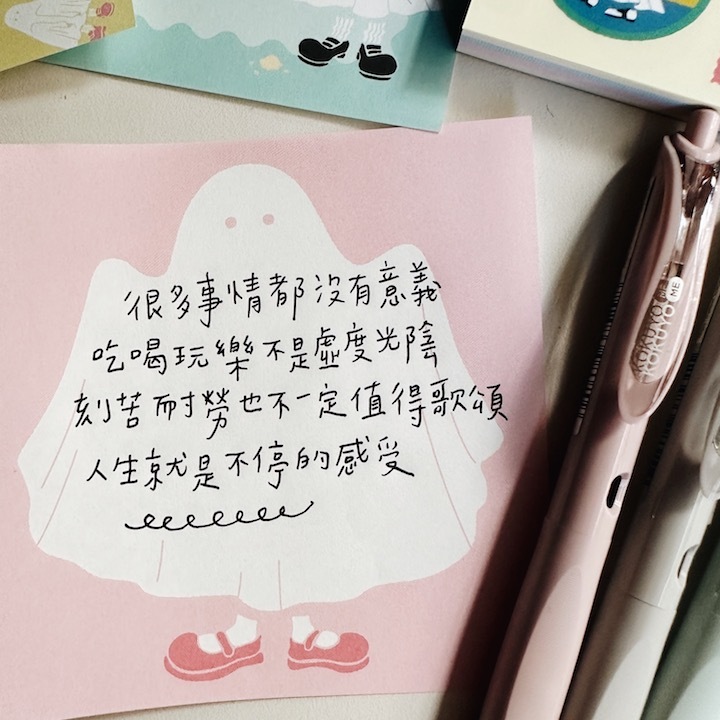 很多事情都沒有意義
吃喝玩樂不是虛度光陰
刻苦耐勞也不一定值得歌頌
人生就是不停的感受
KOKUYO ME
KOKUYO